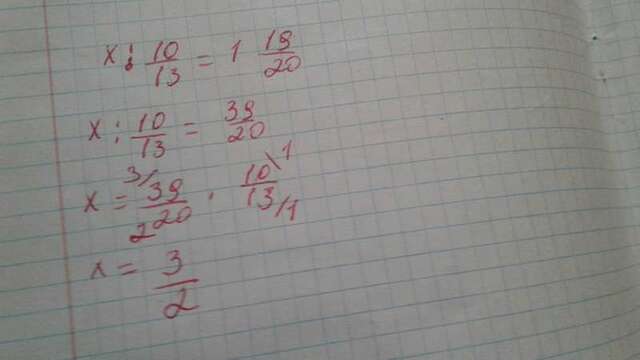 x : 10/13 = 1 19/20
x : 10/13 = 39/20
x = 3/ 39/20 2 · 10/13 \1 /1
x = 3/2